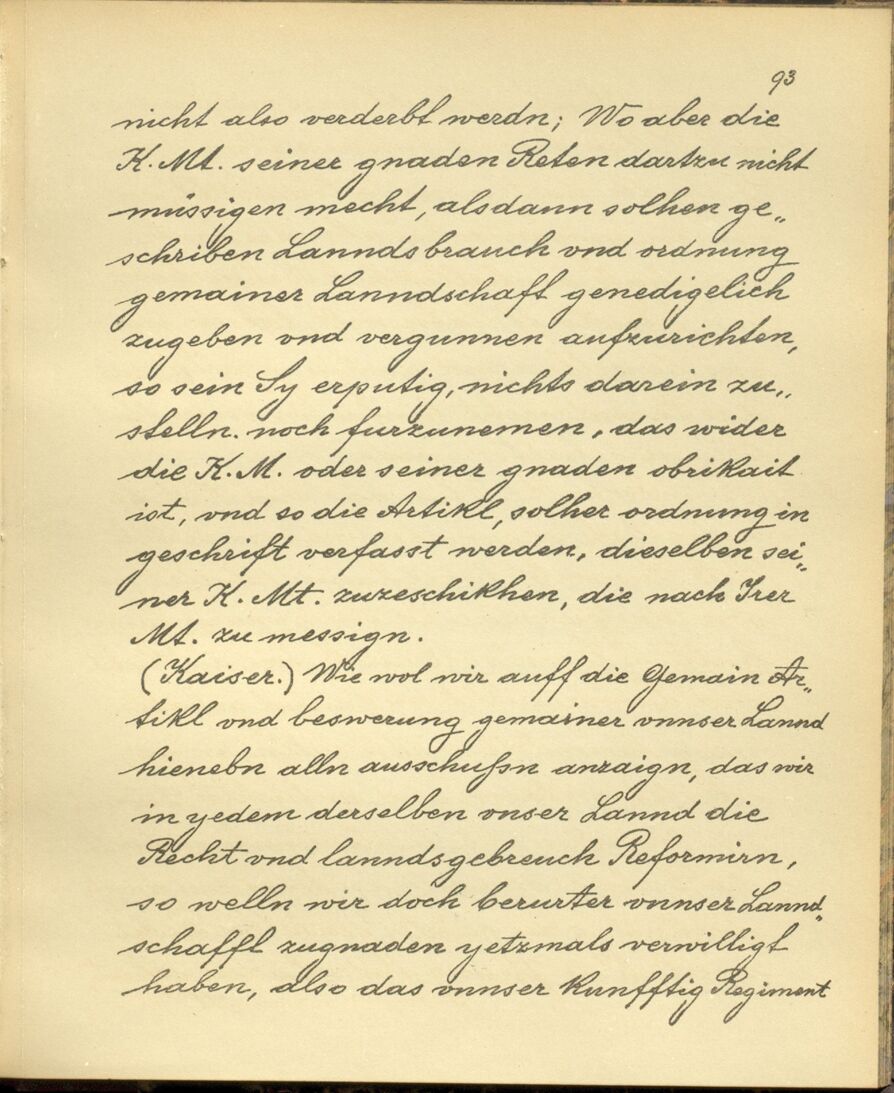 93
nicht also verderbt werdn; Wo aber die
K. Mt. seiner gnaden Reten dartzu nicht
müssigen mecht, alsdann solhen ge„
schriben Lanndsbrauch vnd ordnung
gemainer Lanndschaft genedigelich
zugeben vnd vergunnen aufzurichten,
so sein Sy erputig, nichts darein zu„
stelln. noch furzunemen, das wider
die K. M. oder seiner gnaden obrikait
ist, vnd so die Artikl, solher ordnung in
geschrift verfasst werden, dieselben sei„
ner K. Mt. zuzeschikhen, die nach Irer
Mt. zu messign.
(Kaiser.) Wie wol wir auff die Gemain Ar„
tikl vnd beswerung gemainer vnnser Lannd
hienebn alln ausschußn anzaign, das wir
in yedem derselben vnser Lannd die
Recht vnd lanndsgebreuch Reformirn,
so welln wir doch berurter vnnser Lannd„
schafft zugnaden yetzmals verwilligt
haben, also das vnnser kunfftig Regiment